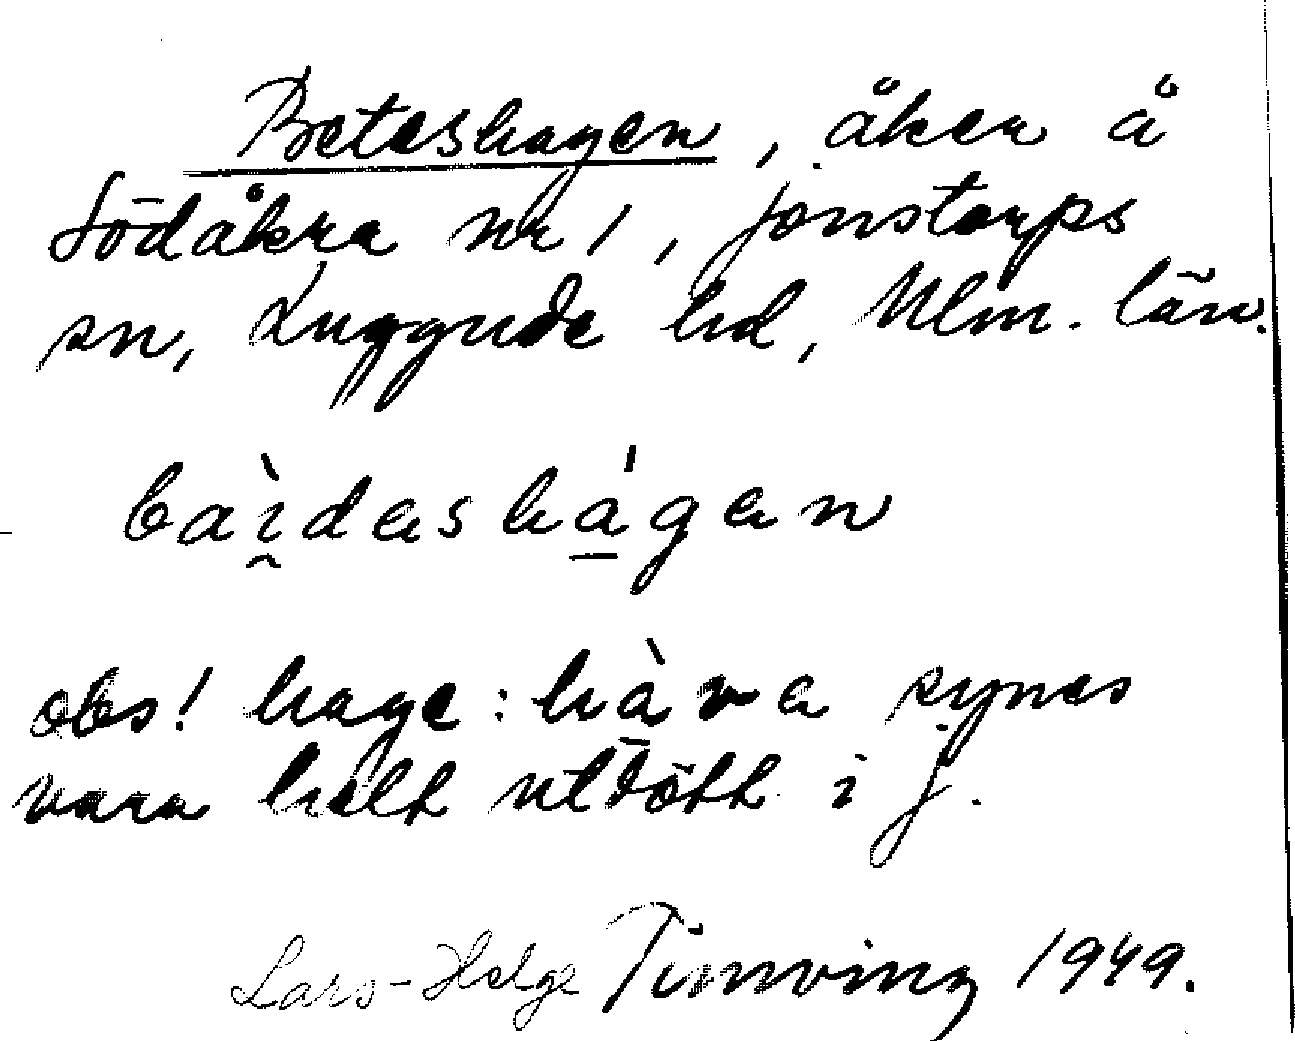 Beteshagen, åker å
Södåkra nr 1, Jonstorps
sn, Luggude hd, Mlm. län.
baì̯deshá̱gen
obs! hage: hà̱va synes
vara helt utdött i J.
Lars-Helge Tinnving 1949.